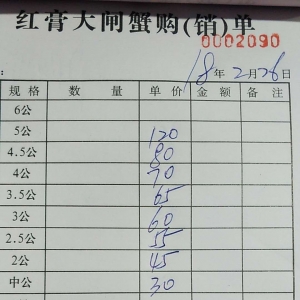 红膏大闸蟹购(销)单
0002090
: 18年2月26日
规格 数量 单价 金额 备注
6公
5公 120
4.5公 80
4公 70
3.5公 65
3公 60
2.5公 55
2公 45
中公 30